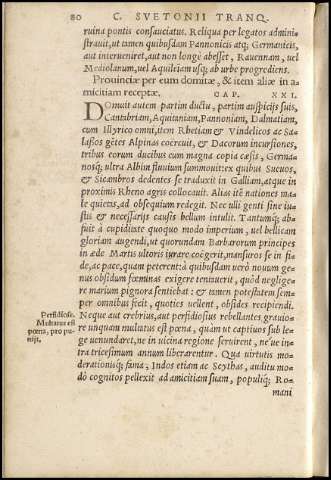 80 C. SVETONII TRANQ.
ruina pontis consauciatus. Reliqua per legatos admini-
strauit, ut tamen quibusdam Pannonicis atq; Germanicis,
aut interueniret, aut non longè abesset, Rauennam, uel
Mediolanum, uel Aquileiam usq; ab urbe progrediens.
Prouinciæ per eum domitæ, & item aliæ in a-
micitiam receptæ. CAP. XXI.
Domuit autem partim ductu, partim auspicijs suis,
Cantabriam, Aquitaniam, Pannoniam, Dalmatiam,
cum Illyrico omni, item Rhetiam & Vindelicos ac Sa-
lassos gētes Alpinas coërcuit, & Dacorum incursiones,
tribus eorum ducibus cum magna copia cæsis, Germa-
nosq; ultra Albim fluuium summouit: ex quibus Sueuos,
& Sicambros dedentes se traduxit in Galliam, atque in
proximis Rheno agris collocauit. Alias itē nationes ma-
le quietas, ad obsequium redegit. Nec ulli genti sine iu-
stis & necessarijs causis bellum intulit. Tantumq; ab-
fuit à cupiditate quoquo modo imperium, uel bellicam
gloriam augendi, ut quorundam Barbarorum principes
in æde Martis ultoris iurare coëgerit, mansuros se in fi-
de, ac pace, quam peterent: à quibusdam uerò nouum ge-
nus obsidum fœminas exigere tentauerit, quòd neglige-
re marium pignora sentiebat: & tamen potestatem sem-
per omnibus fecit, quoties uellent, obsides recipiendi.
Perfidiosis.
Mulctatus est
pœna, pro pu-
niit.
Neque aut crebrius, aut perfidiosius rebellantes grauio-
re unquam mulctatus est pœna, quàm ut captiuos sub le-
ge uenundaret, ne in uicina regione seruirent, ne'ue in-
tra tricesimum annum liberarentur. Qua uirtutis mo-
derationisq; fama, Indos etiam ac Scythas, auditu mo-
dò cognitos pellexit ad amicitiam suam, populiq; Ro-
mani